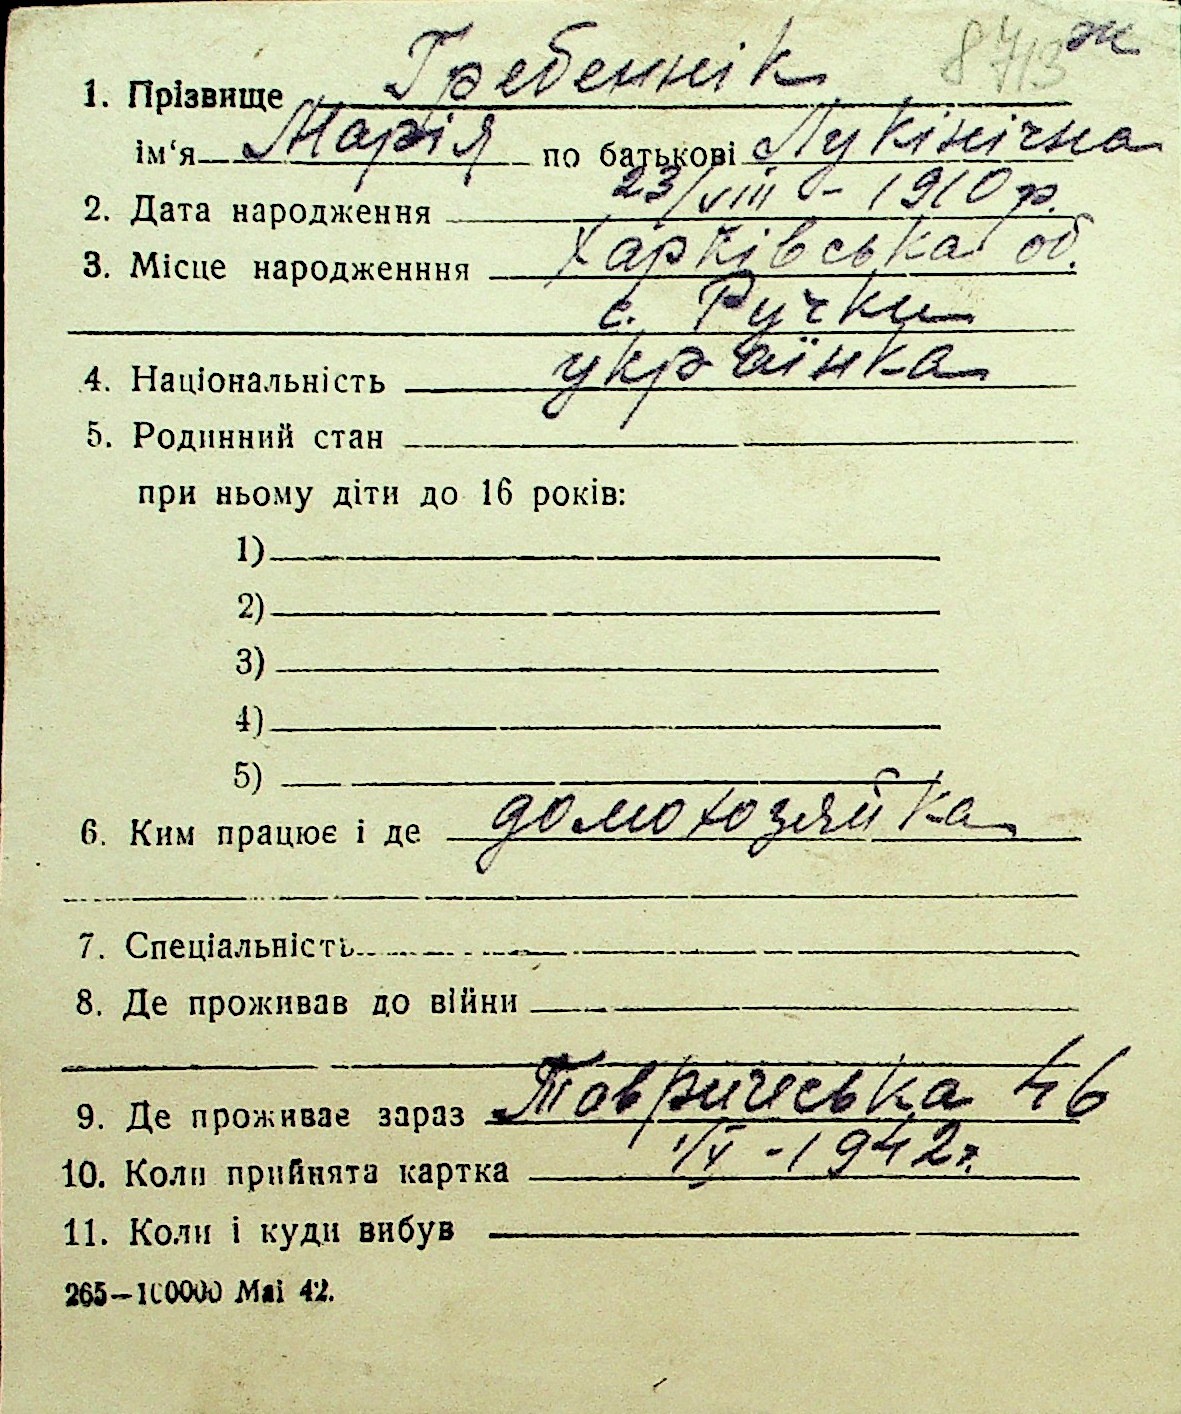 8713 ж
1. Прізвище Гребеннік
ім‘я Марія по батькові Лукінічна
2. Дата народження 23/VIII - 1910 р.
3. Місце народженння Харківська об.
с. Ручки
4. Національність українка
5. Родинний стан
при ньому діти до 16 років:
1)
2)
3)
4)
5)
6. Ким працює і де домохозяйка
7. Спеціальність
8. Де проживав до війни
9. Де проживає зараз Тавричеська 46
10. Коли прийнята картка 1/X - 1942 г.
11. Коли і куди вибув
265—100000 Маі 42.